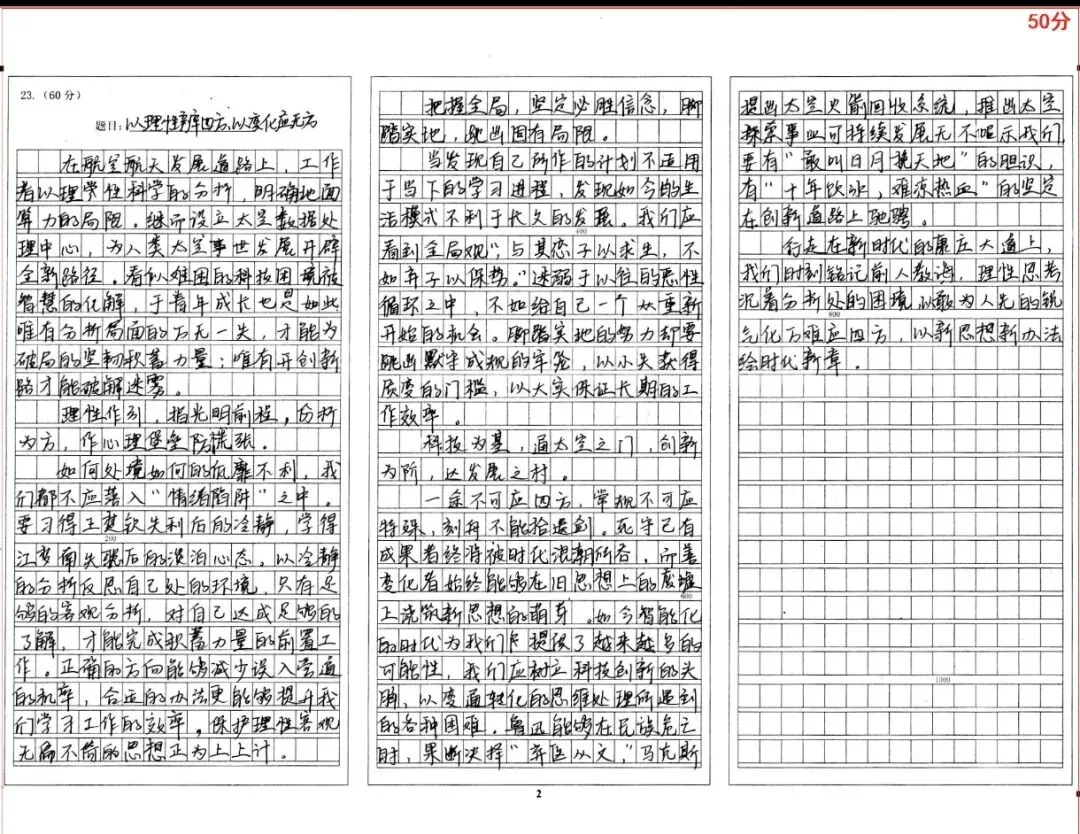 50分
23.（60分）
题目：以理性定四方，以变化应无方
在航空航天发展道路上，工作
者以理学性科学的分析，明确地面
算力的局限。继而设立太空数据处
理中心，为人类太空事世发展开辟
全新路径。看似难困的科技困境被
智慧的化解，于青年成长也是如此
唯有分析局面的万无一失，才能为
破局的坚韧积蓄力量；唯有开创新
路才能破解迷雾。
理性作剑，指光明前程，分析
为方，作心理堡垒防慌张。
如何处境如何的低靡不利，我
们都不应落入“情绪陷阱”之中。
要习得王楚钦失利后的冷静，学得
江梦南失聪后的淡泊心态，以冷静
的分析反思自己处的环境，只有足
够的客观分析，对自己达成足够的
了解，才能完成积蓄力量的前置工
作。正确的方向能够减少误入歧途
的机率，合适的办法更能够提升我
们学习工作的效率，保护理性客观
无偏不倚的思想正为上上计。
200
把握全局，坚定必胜信念，脚
踏实地，跳出固有局限。
当发现自己所作的计划不适用
于当下的学习进程，发现如今的生
活模式不利于长久的发展。我们应
400
看到全局观”与其恋子以求生，不
如弃子以保势。”迷溺于以往的恶性
循环之中，不如给自己一个从重新
开始的机会。脚踏实地的努力却要
跳出默守成规的牢笼，以小失获得
质变的门槛，以大实保证长期的工
作效率。
科技为基，通太空之门，创新
为阶，达发展之村。
一途不可应四方，常规不可应
特殊，刻舟不能拾遗剑。死守已有
成果者终将被时代浪潮所吞，而善
变化者始终能够在旧思想上的废墟
600
上浇筑新思想的萌芽。如今智能化
的时代为我们提供了越来越多的
可能性，我们应树立科技创新的头
脑，以变通转化的思维处理所遇到
的各种困难。鲁迅能够在民族危亡
时，果断决择“弃医从文，”马克斯
2
提出太空火箭回收系统，推出太空
探索事业可持续发展无不昭示我们，
要有“敢叫日月换天地”的胆识，
有“十年饮冰，难凉热血”的坚定
在创新道路上驰骋。
行走在新时代的康庄大道上，
我们时刻铭记前人教诲，理性思考
沉着分析处的困境，以敢为人先的锐
800
气化万难应四方，以新思想新办法
绘时代新章。
1000